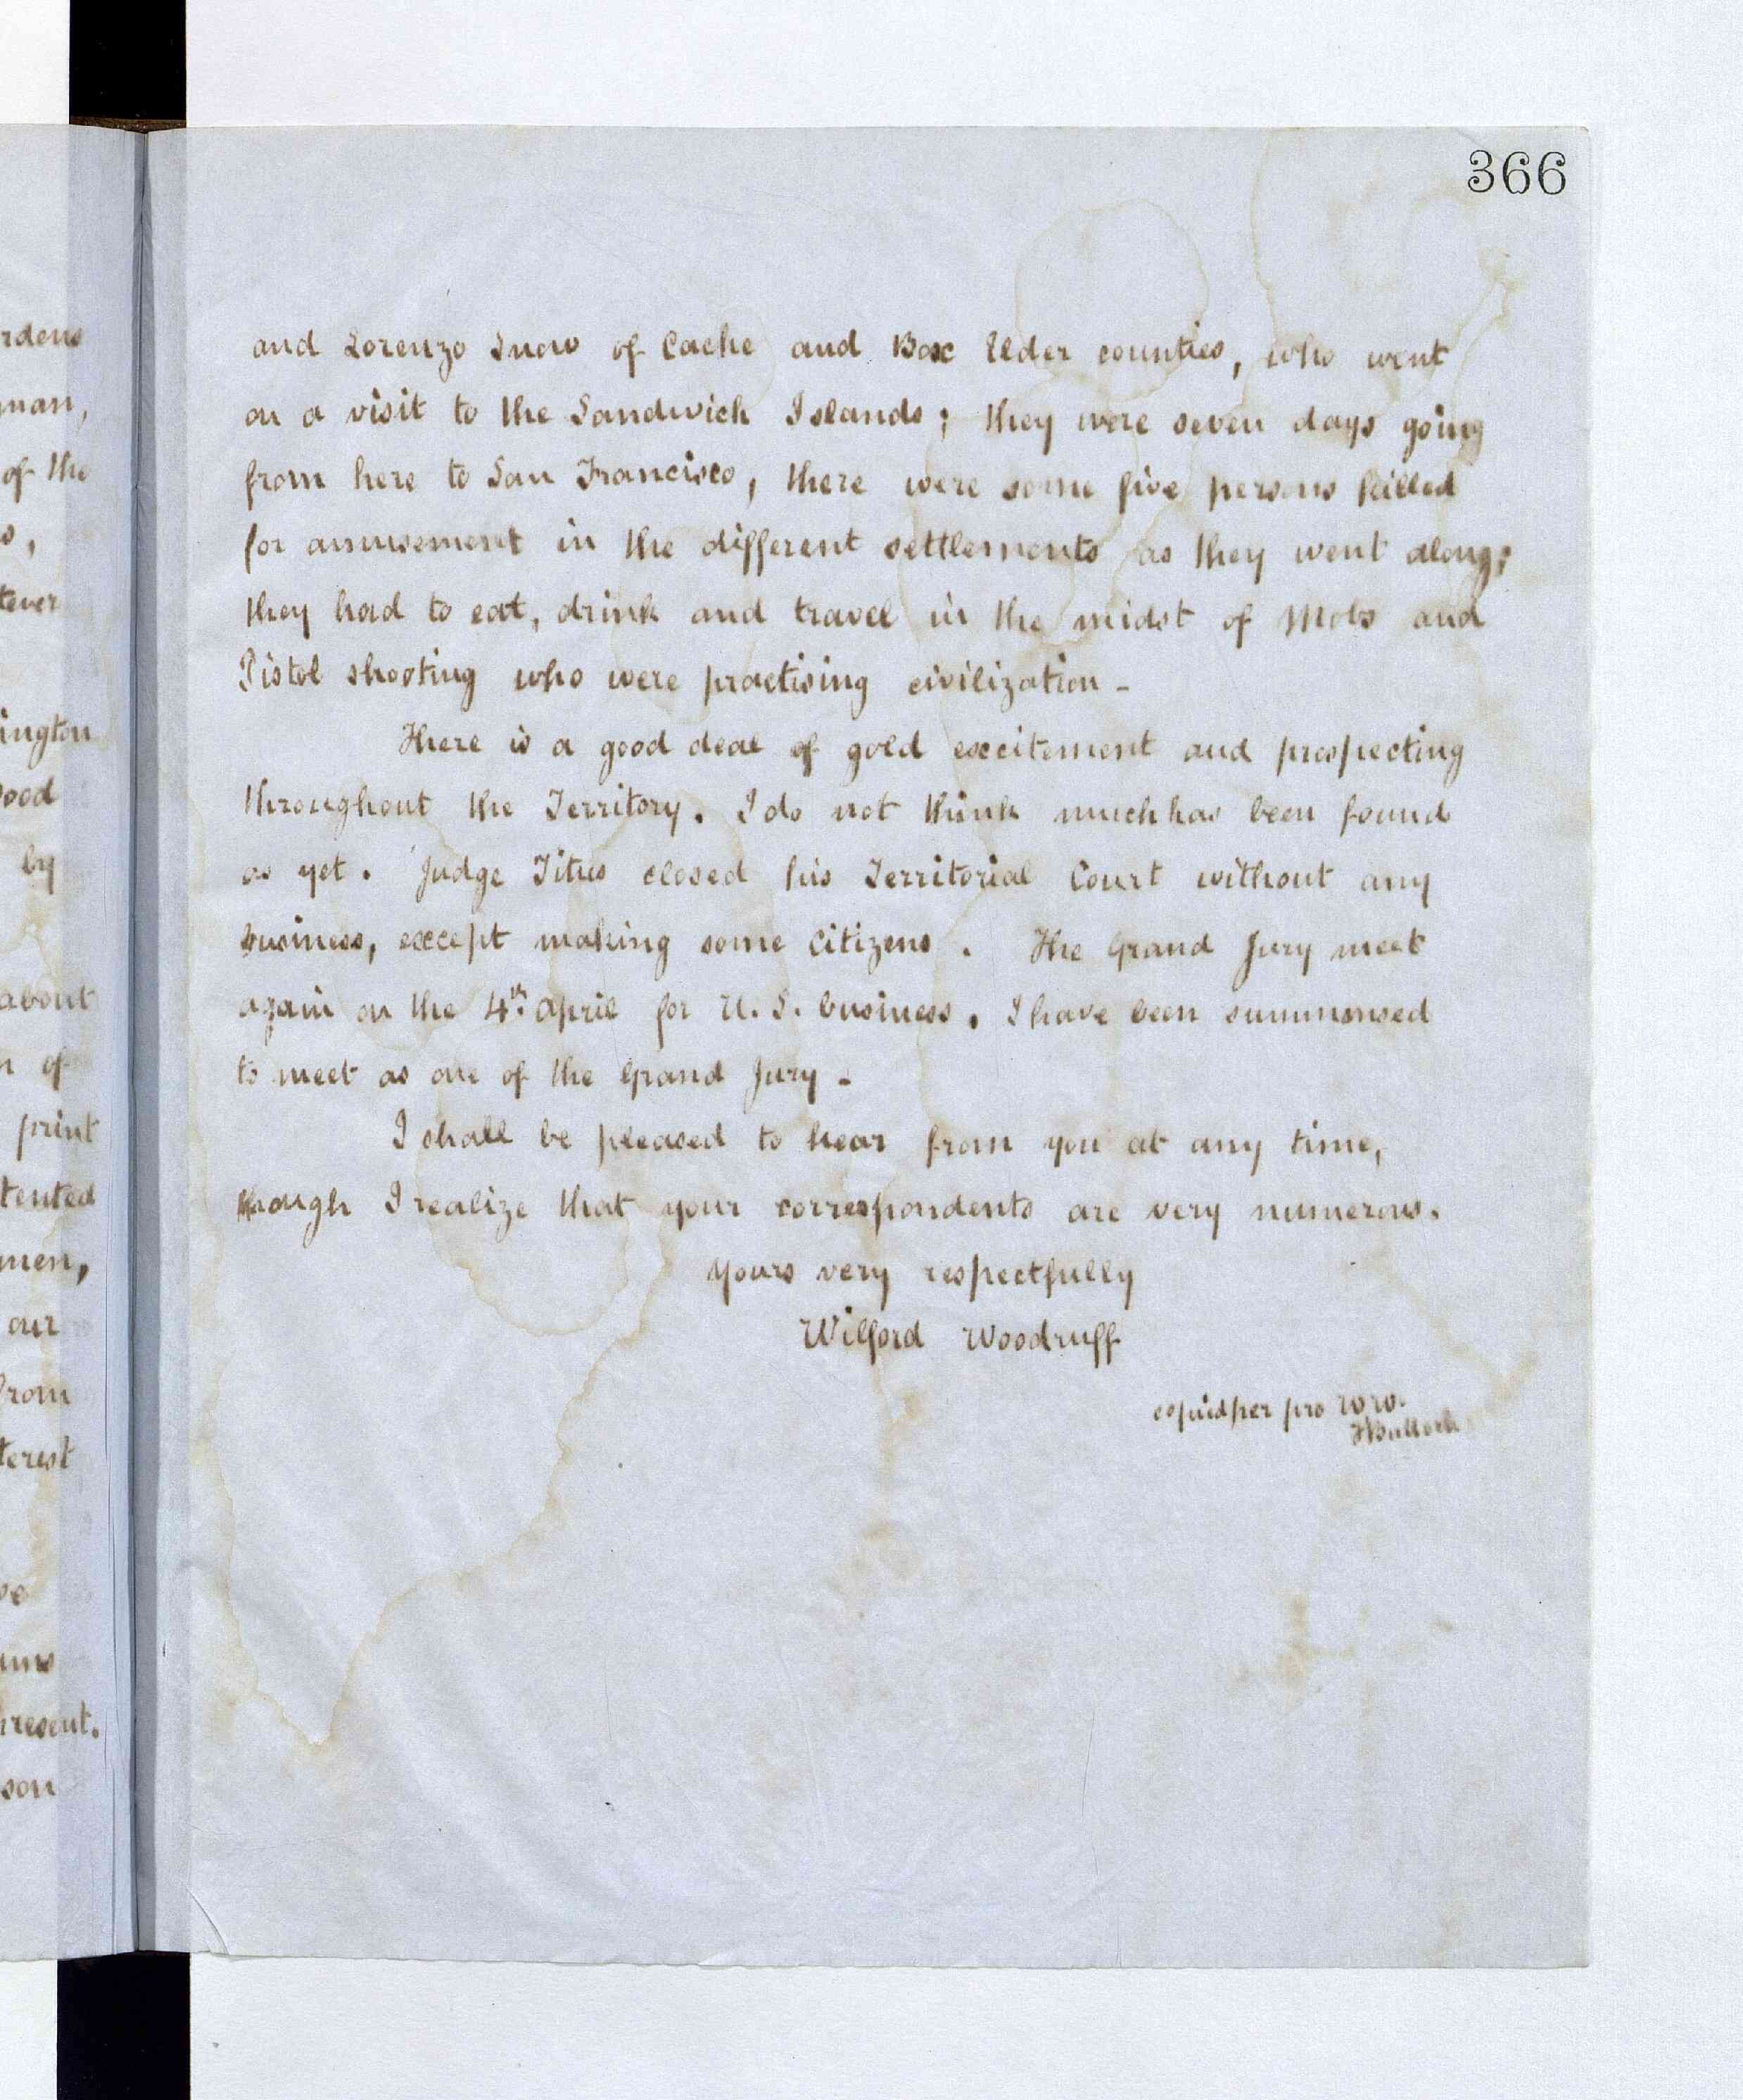 366
and Lorenzo Snow of Cache and Box Elder counties, who went
on a visit to the Sandwich Islands; they were seven days going
from here to San Francisco, there were some five persons killed
for amusement in the different settlements as they went along;
they had to eat, drink and travel in the midst of Mobs and
Pistol shooting who were practising civilization -
There is a good deal of gold excitement and prospecting
throughout the Territory. I do not think much has been found
as yet. Judge Titus closed his Territorial Court without any
business, except making some Citizens. The Grand Jury meet
again on the 4th. April for U. S. business. I have been summonsed
to meet as one of the Grand Jury -
I shall be pleased to hear from you at any time,
though I realize that your correspondents are very numerous.
Yours very respectfully
Wilford Woodruff
copied per pro W W.
TBullock
rdens
man,
of the
s,
tever
ington
ood
by
about
n of
print
tented
men,
our
from
terest
ve
ums
resent.
son